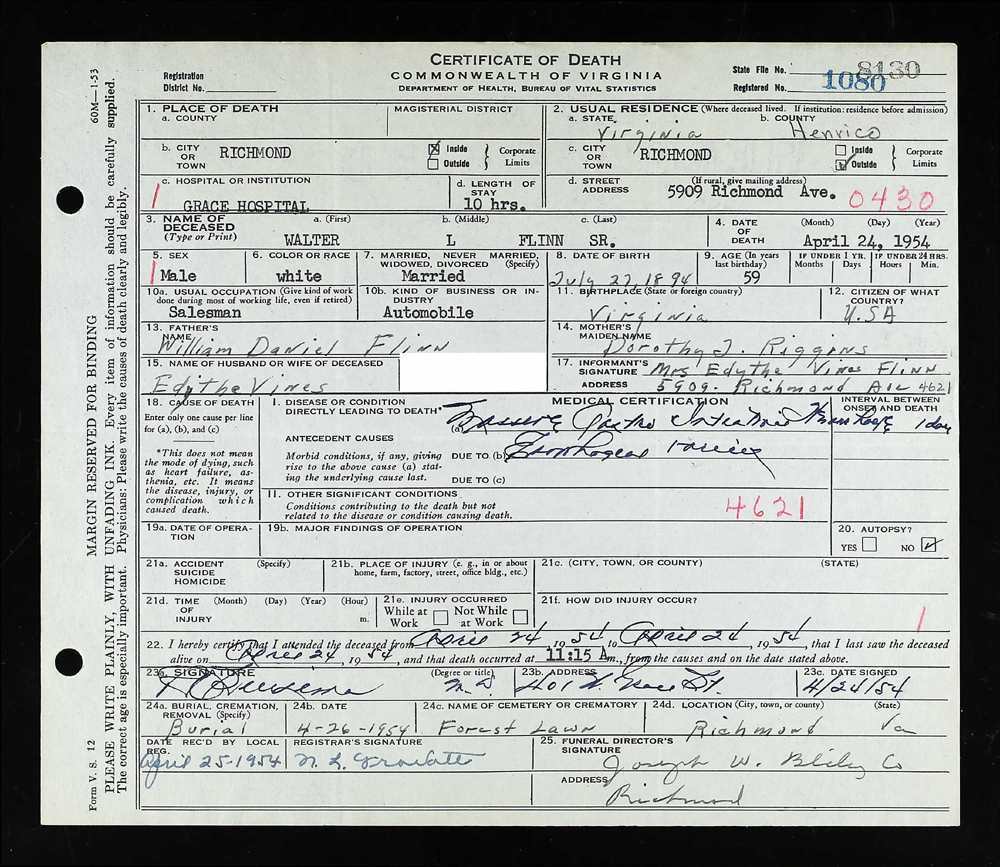 CERTIFICATE OF DEATH
COMMONWEALTH OF VIRGINIA
DEPARTMENT OF HEALTH, BUREAU OF VITAL STATISTICS
Registration
District No.
State File No. 8130
Registered No. 1080
1. PLACE OF DEATH
a. COUNTY
MAGISTERIAL DISTRICT
2. USUAL RESIDENCE (Where deceased lived. If institution: residence before admission)
a. STATE Virginia
b. COUNTY Henrico
b. CITY OR TOWN RICHMOND
Inside
Outside
Corporate Limits
c. CITY OR TOWN RICHMOND
Inside
Outside
Corporate Limits
c. HOSPITAL OR INSTITUTION
GRACE HOSPITAL
d. LENGTH OF STAY
10 hrs.
d. STREET ADDRESS (If rural, give mailing address)
5909 Richmond Ave. 0430
3. NAME OF DECEASED (Type or Print)
a. (First) b. (Middle) c. (Last)
WALTER L FLINN SR.
4. DATE OF DEATH (Month) (Day) (Year)
April 24, 1954
5. SEX
1 Male
6. COLOR OR RACE
white
7. MARRIED, NEVER MARRIED, WIDOWED, DIVORCED (Specify)
Married
8. DATE OF BIRTH
July 27, 1894
9. AGE (In years last birthday)
59
IF UNDER 1 YR.
Months Days
IF UNDER 24 HRS.
Hours Min.
10a. USUAL OCCUPATION (Give kind of work done during most of working life, even if retired)
Salesman
10b. KIND OF BUSINESS OR INDUSTRY
Automobile
11. BIRTHPLACE (State or foreign country)
Virginia
12. CITIZEN OF WHAT COUNTRY?
U.SA
13. FATHER'S NAME
William Daniel Flinn
14. MOTHER'S MAIDEN NAME
Dorothy J. Riggins
15. NAME OF HUSBAND OR WIFE OF DECEASED
Edythe Vines
17. INFORMANT'S SIGNATURE Mrs Edythe Vines Flinn
ADDRESS 5909- Richmond Ave 4621
18. CAUSE OF DEATH
Enter only one cause per line for (a), (b), and (c)
*This does not mean the mode of dying, such as heart failure, asthenia, etc. It means the disease, injury, or complication which caused death.
MEDICAL CERTIFICATION
INTERVAL BETWEEN ONSET AND DEATH
I. DISEASE OR CONDITION DIRECTLY LEADING TO DEATH*
(a) Massive Gastro Intestinal Hemorrhage 1 day
ANTECEDENT CAUSES
Morbid conditions, if any, giving rise to the above cause (a) stating the underlying cause last.
DUE TO (b) Esophageal varices
DUE TO (c)
II. OTHER SIGNIFICANT CONDITIONS
Conditions contributing to the death but not related to the disease or condition causing death.
4621
19a. DATE OF OPERATION
19b. MAJOR FINDINGS OF OPERATION
20. AUTOPSY?
YES NO
21a. ACCIDENT SUICIDE HOMICIDE (Specify)
21b. PLACE OF INJURY (e. g., in or about home, farm, factory, street, office bldg., etc.)
21c. (CITY, TOWN, OR COUNTY) (STATE)
21d. TIME OF INJURY (Month) (Day) (Year) (Hour) m.
21e. INJURY OCCURRED
While at Work Not While at Work
21f. HOW DID INJURY OCCUR?
1
22. I hereby certify that I attended the deceased from April 24, 1954, to April 24, 1954, that I last saw the deceased
alive on April 24, 1954, and that death occurred at 11:15 A m., from the causes and on the date stated above.
23a. SIGNATURE (Degree or title)
M.D
23b. ADDRESS
401 W. Grace St.
23c. DATE SIGNED
4/24/54
24a. BURIAL, CREMATION, REMOVAL (Specify)
Burial
24b. DATE
4-26-1954
24c. NAME OF CEMETERY OR CREMATORY
Forest Lawn
24d. LOCATION (City, town, or county) (State)
Richmond Va
DATE REC'D BY LOCAL REG.
April 25-1954
REGISTRAR'S SIGNATURE
25. FUNERAL DIRECTOR'S SIGNATURE
Joseph W. Bliley Co
ADDRESS
Richmond
Form V. S. 12
60M—1-53
MARGIN RESERVED FOR BINDING
PLEASE WRITE PLAINLY, WITH UNFADING INK. Every item of information should be carefully supplied.
The correct age is especially important. Physicians: Please write the causes of death clearly and legibly.